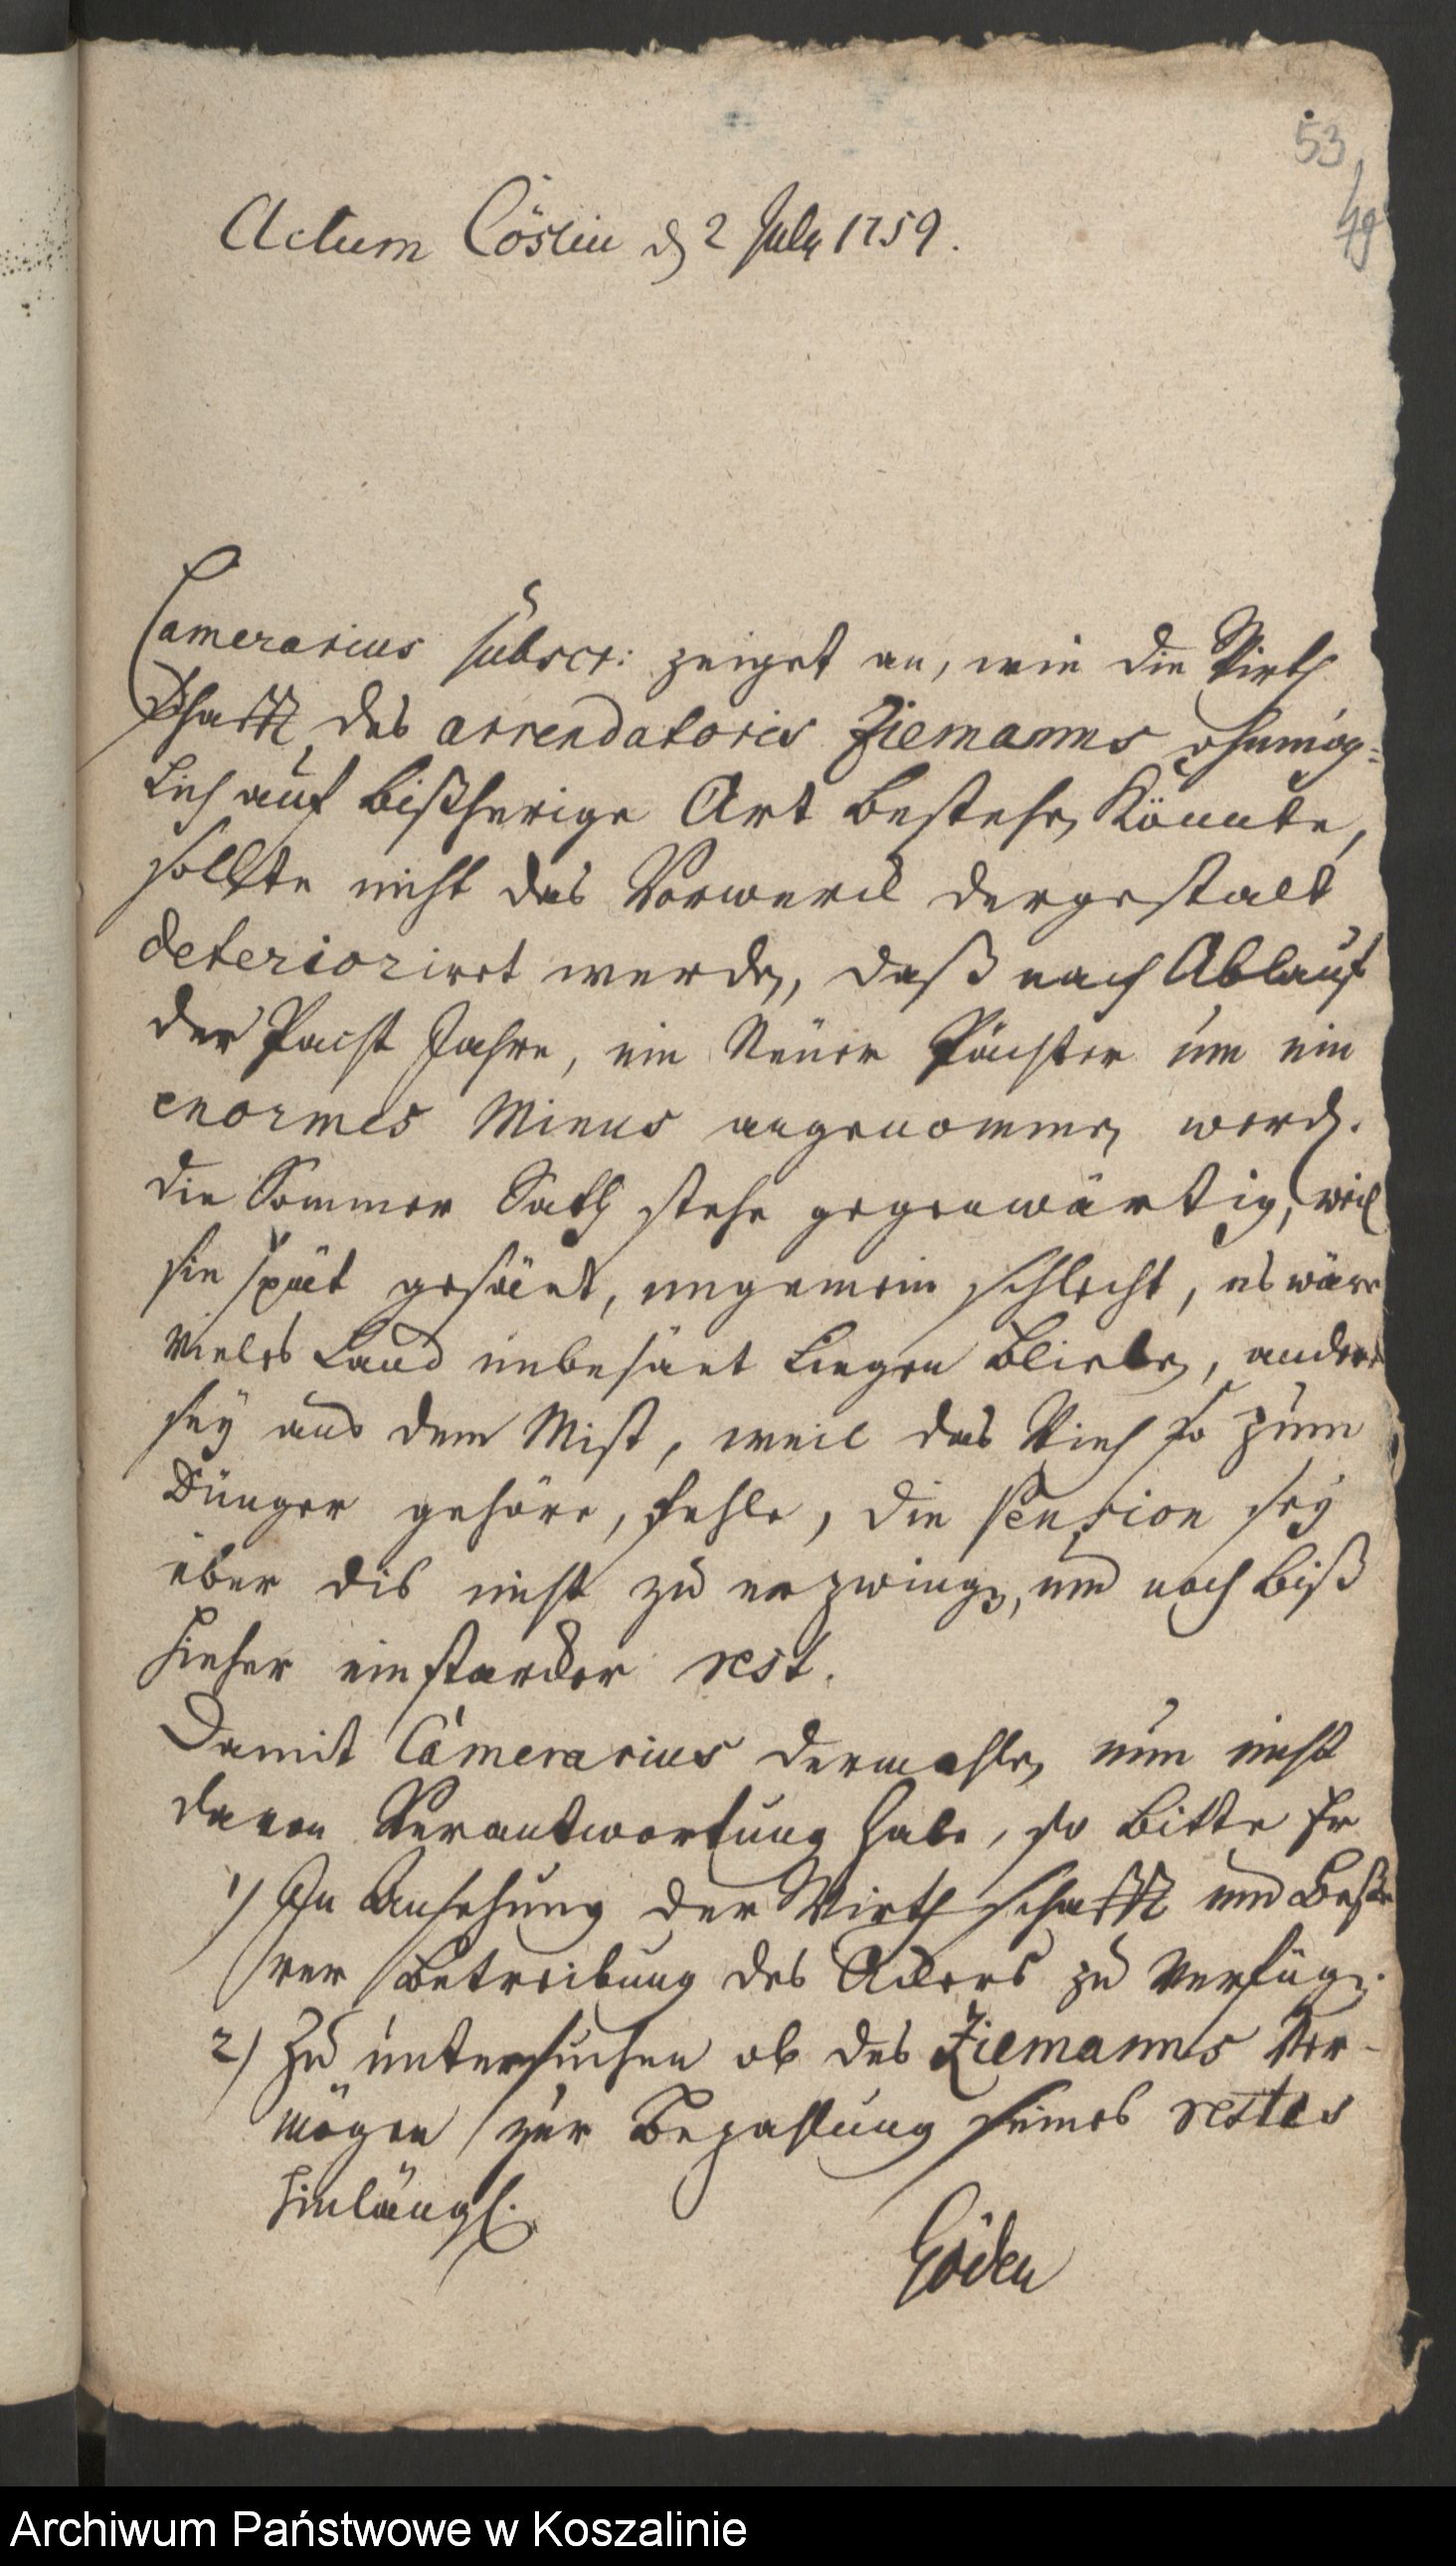 53
49
Actum Cöslin d 2 July 1759.
Camerarius subscr: zeiget an, wie die Wirth
schafft des arrendatoris Ziemanns ohnmög-
lich auf bißherige Art bestehen könnte,
sollte nicht das Vorwerck dergestalt
deterioriret werden, daß nach Ablauf
der Pacht Jahre, ein Neuer Pächter um ein
enormes Minus angenommen werde.
die Sommer Sath stehe gegenwärtig, weil
sie spät gesäet, ungemein schlecht, es wäre
vieles Land unbesäet liegen blieben, andere
sey aus dem Mist, weil das Vieh so zum
Dünger gehöre, fehle, die Pension sey
über dis nicht zu erzwingen, und noch biß
hieher ein starcker rest.
Damit Camerarius dermahlen nun nicht
davon Verantwortung habe, so bitte Er
1) In Ansehung der Wirthschafft und beße
rer Betreibung des Ackers zu verfügen.
2) Zu untersuchen ob des Ziemanns Ver-
mögen zur Bezahlung seines restes
hinlängl.
Göden
Archiwum Państwowe w Koszalinie